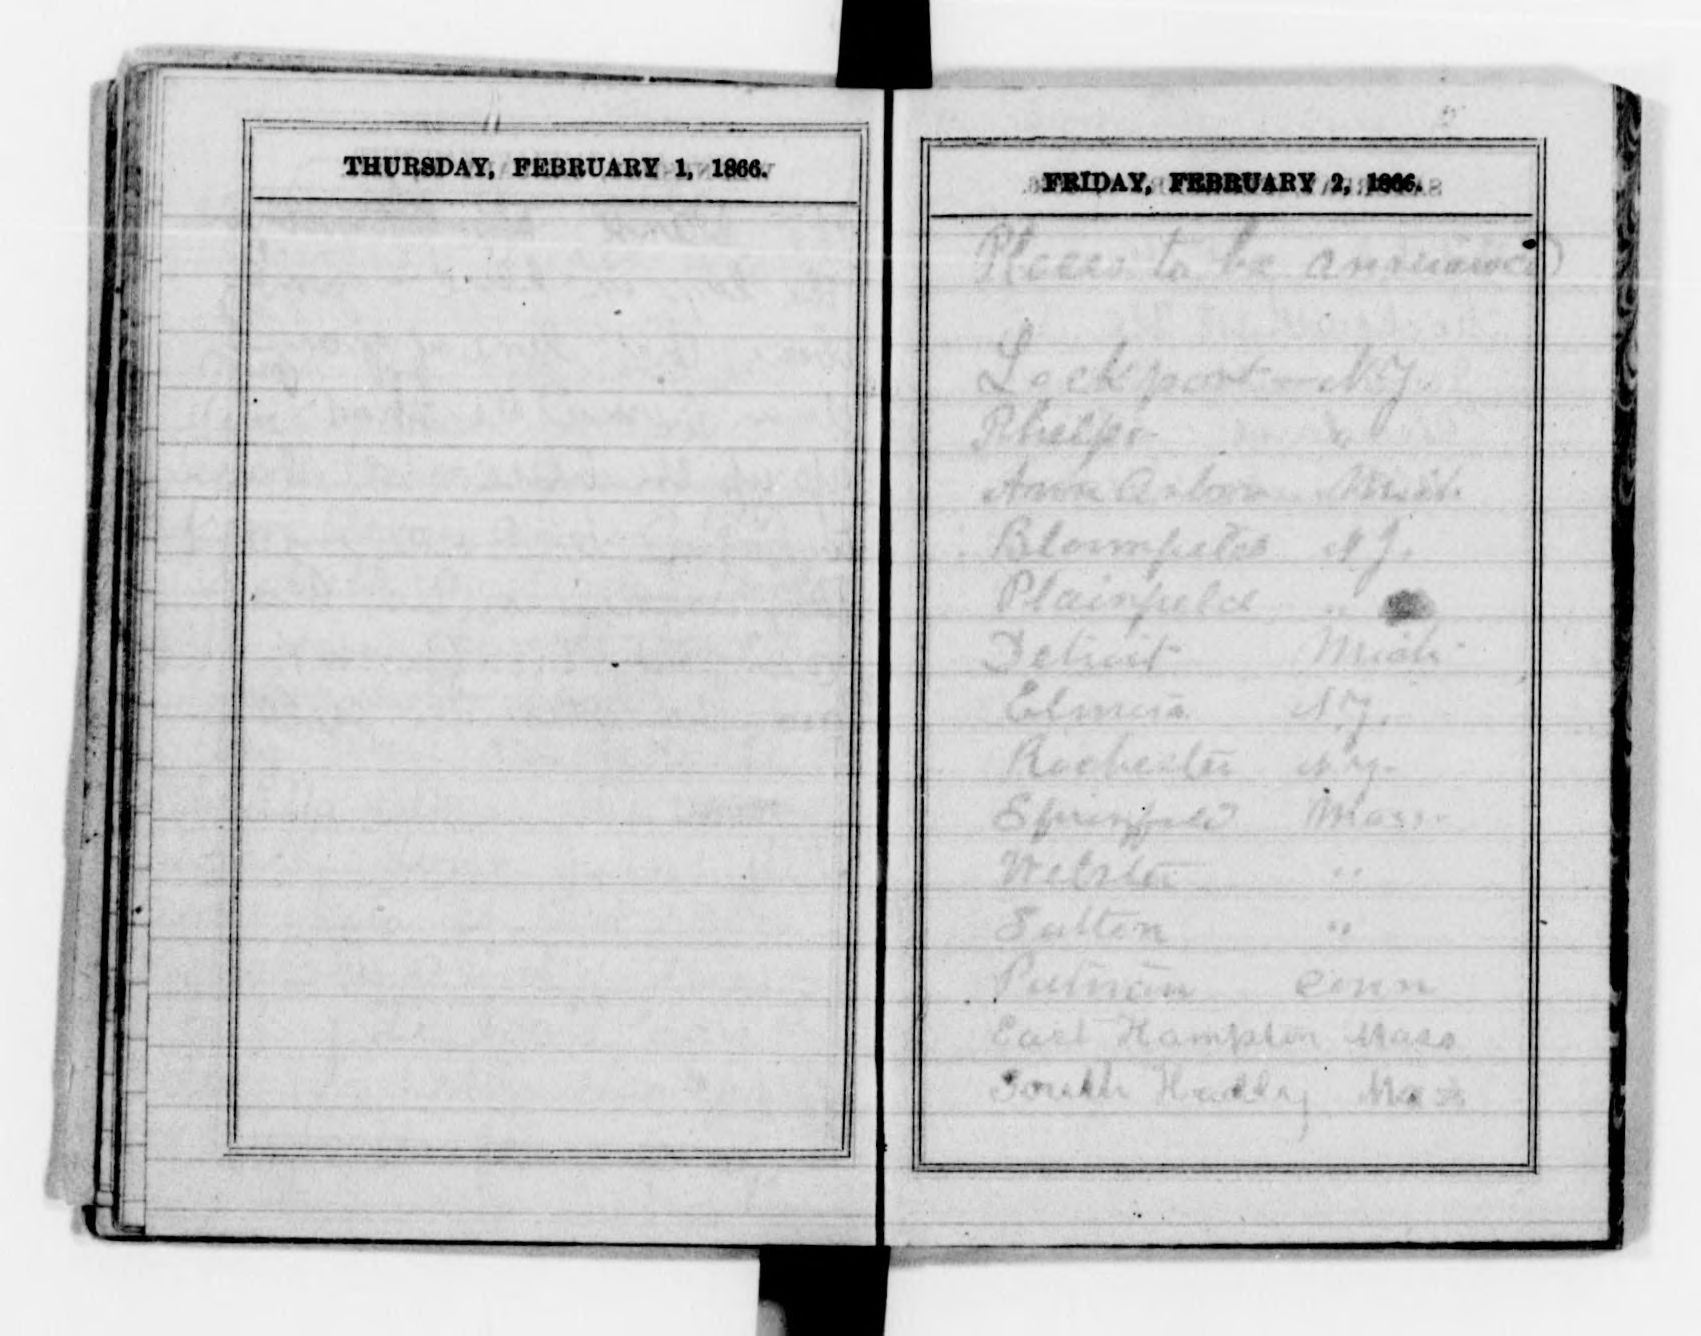 THURSDAY, FEBRUARY 1, 1866.
FRIDAY, FEBRUARY 2, 1866.
Places to be
Lockport - N.Y.
Phelps "
Ann Arbor Mich.
Bloomfield N.J.
Plainfield "
Detroit Mich
Elmira N.Y.
Rochester N.Y.
Springfield Mass.
Webster "
Sutton "
Putnam Conn
East Hampton Mass
South Hadley Mass